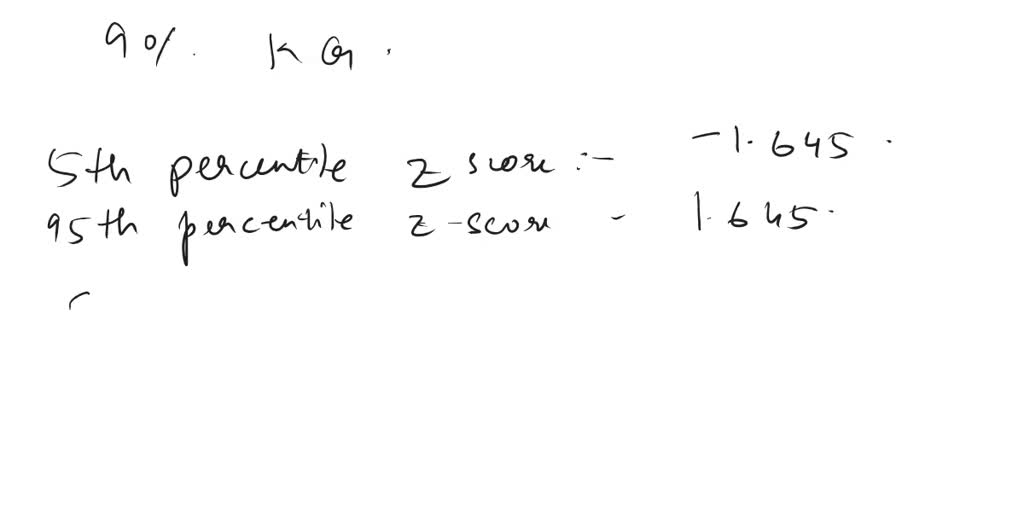 90%. KG.
5th percentile z score :- -1.645.
95th percentile z-score - 1.645.